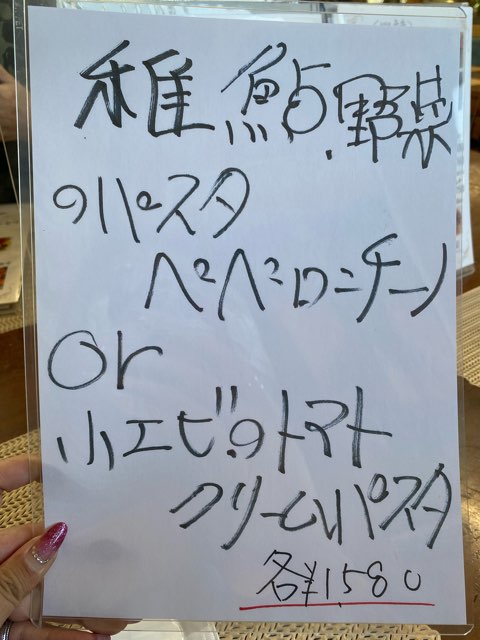 稚鮎.野菜
のパスタ
ペペロニチーノ
or
小エビのトマト
クリームパスタ
各¥1,580